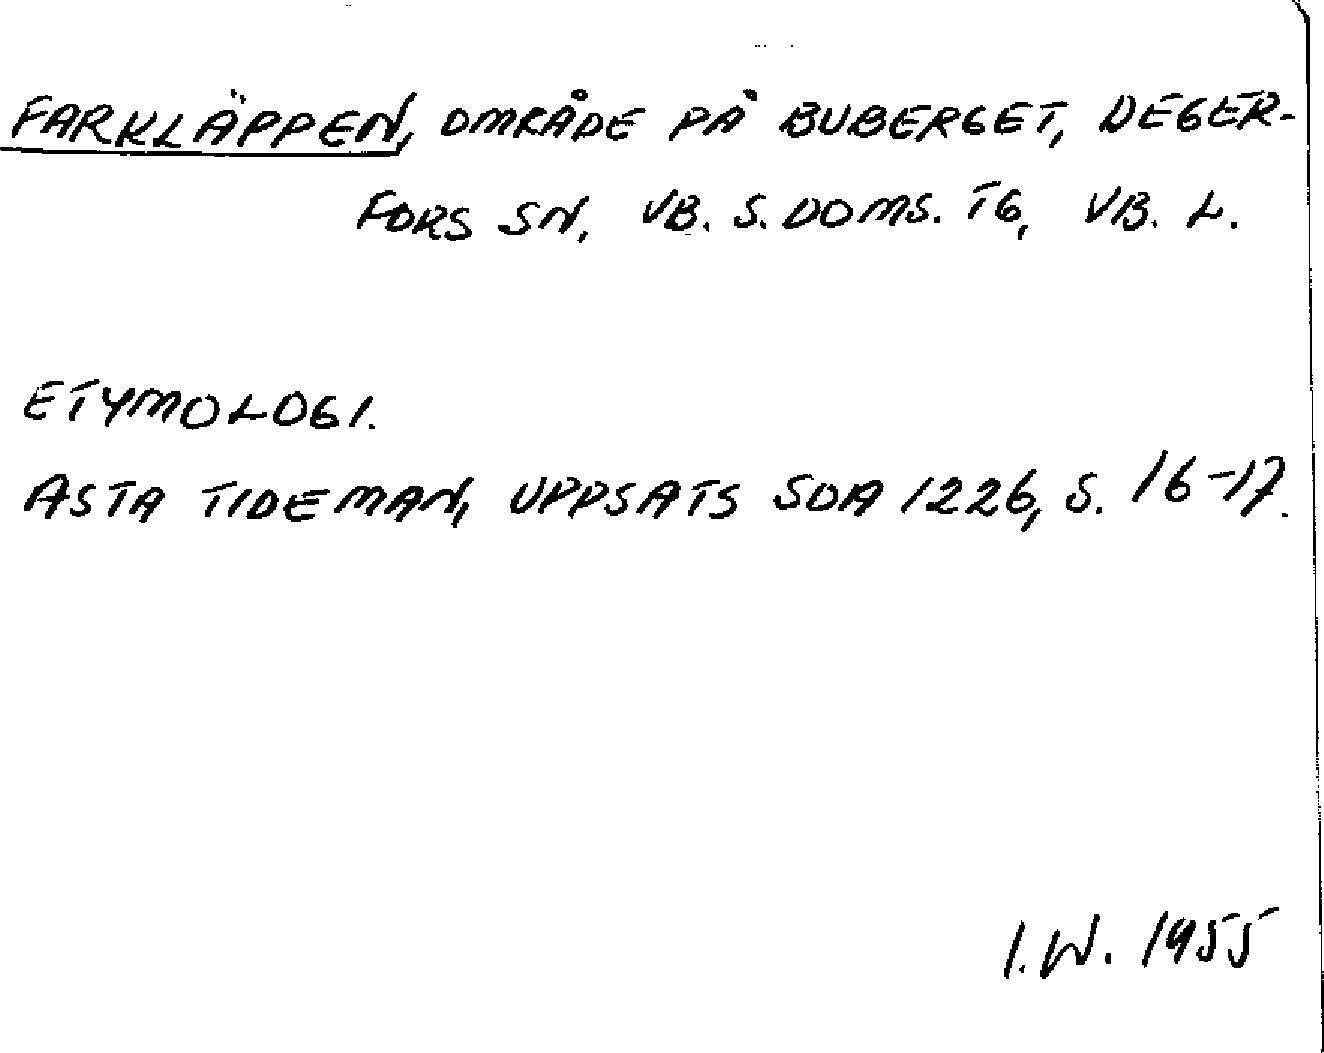 FARKLÄPPEN, OMRÅDE PÅ BUBERGET, DEGER-
FORS SN, VB. S. DOMS. TG, VB. L.
ETYMOLOGI.
ASTA TIDEMAN, UPPSATS SOA 1226, S. 16-17.
I.W. 1955